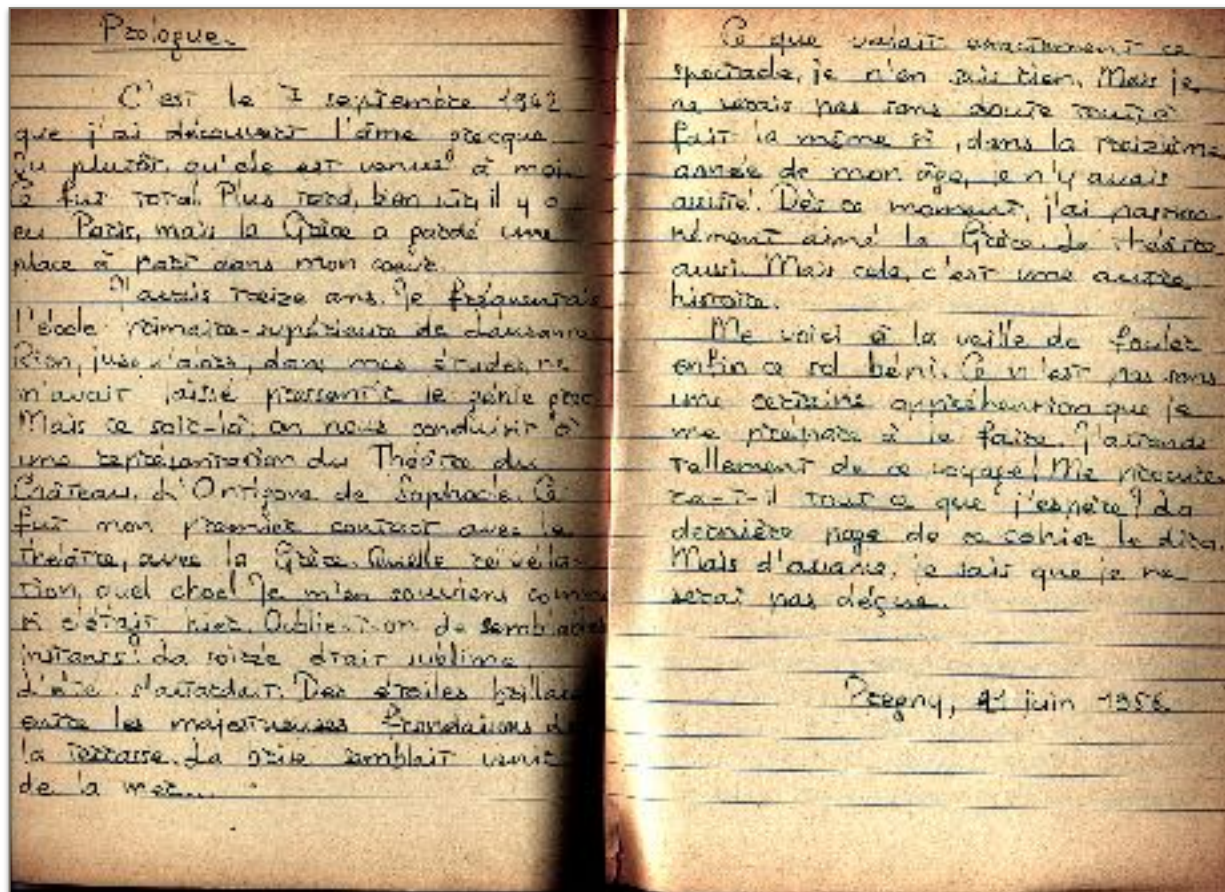 Prologue.
C'est le 7 septembre 1942
que j'ai découvert l'âme grecque.
Ou plutôt, qu'elle est venue à moi.
Ce fut total. Plus tard, bien sûr, il y a
eu Paris, mais la Grèce a gardé une
place à part dans mon coeur.
J'avais treize ans. Je fréquentais
l'école primaire-supérieure de Lausanne.
Rien, jusqu'alors, dans mes études ne
m'avait laissé pressentir le génie grec.
Mais ce soir-là, on nous conduisit à
une représentation du Théâtre du
Château, d'Antigone de Sophocle. Ce
fut mon premier contact avec le
théâtre, avec la Grèce. Quelle révéla-
tion, quel choc! Je m'en souviens comme
si c'était hier. Oublie-t-on de semblables
instants? La soirée était sublime,
L'été s'attardait. Des étoiles brillaient
entre les majestueuses frondaisons de
la terrasse. La brise semblait venir
de la mer...
Ce que valait exactement ce
spectacle, je n'en sais rien. Mais je
ne serais pas sans doute tout à
fait la même si, dans la treizième
année de mon âge, je n'y avais
assisté. Dès ce moment, j'ai passion-
nément aimé la Grèce. Le théâtre
aussi. Mais cela, c'est une autre
histoire.
Me voici à la veille de fouler
enfin ce sol béni. Ce n'est pas sans
une certaine appréhension que je
me prépare à le faire. J'attends
tellement de ce voyage! Me procure-
ra-t-il tout ce que j'espère? La
dernière page de ce cahier le dira.
Mais d'avance, je sais que je ne
serai pas déçue.
Pregny, 21 juin 1956.